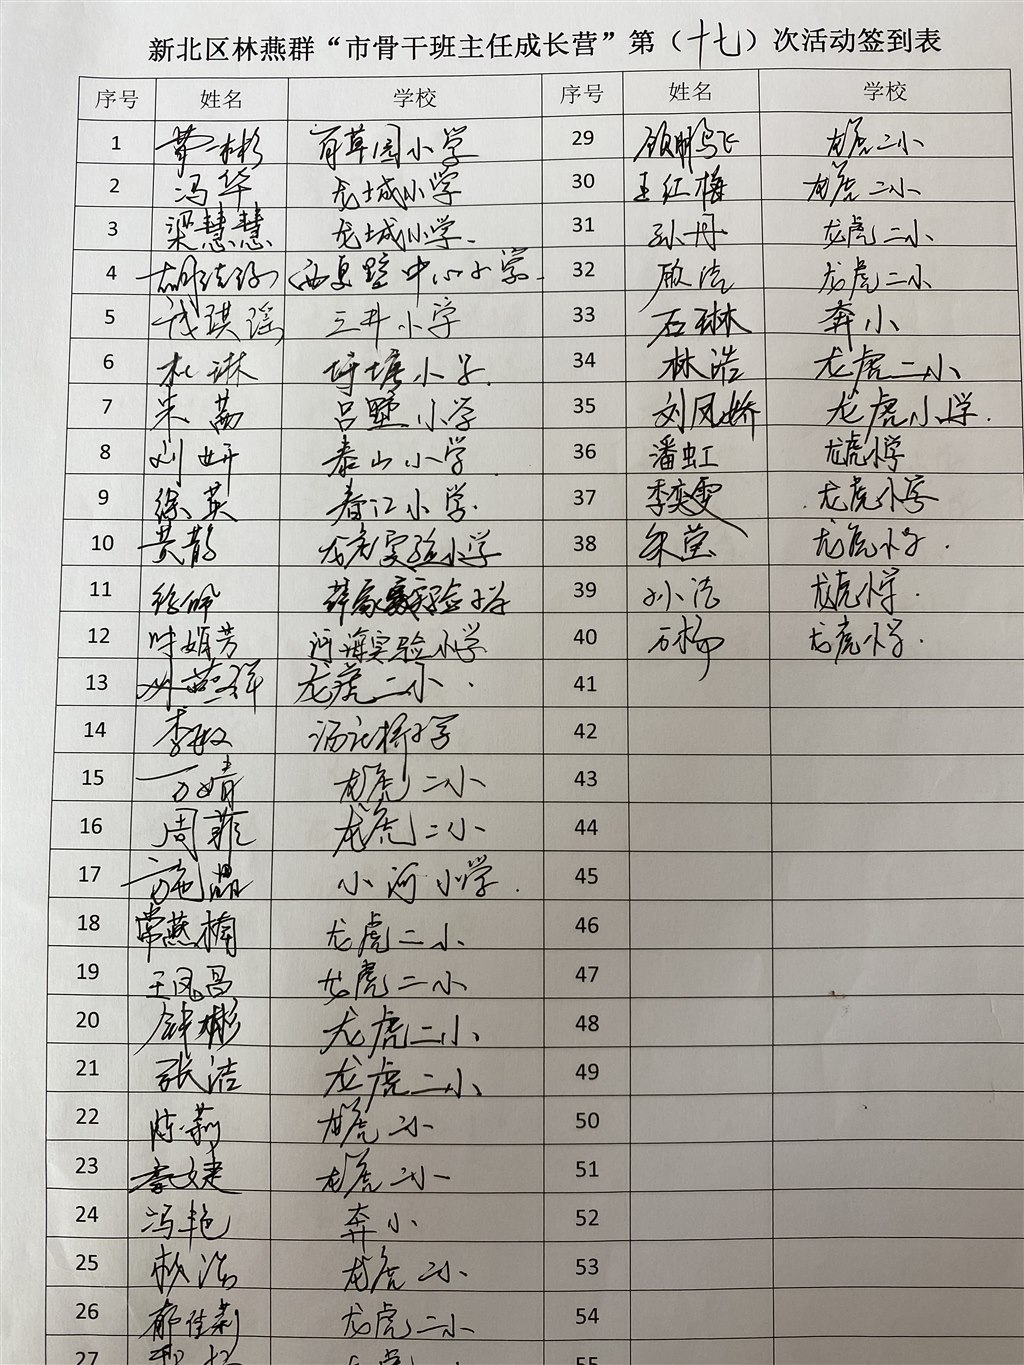 新北区林燕群“市骨干班主任成长营”第（十七）次活动签到表
序号 姓名 学校 序号 姓名 学校
1 小学 29 龙虎二小
2 冯华 龙城小学 30 王红梅 龙虎二小
3 梁慧慧 龙城小学. 31 孙丹 龙虎二小
4 西夏墅中心小学 32 顾洁 龙虎二小
5 钱琪瑶 三井小学 33 石琳 奔小
6 杜琳 圩塘小学. 34 林浩 龙虎二小
7 朱茜 吕墅小学 35 刘凤娇 龙虎小学.
8 刘妍 泰山小学 36 潘虹 龙虎小学
9 徐英 春江小学. 37 李奕雯 龙虎小学
10 黄静 龙虎实验小学 38 朱莹 龙虎小学.
11 徐佩 薛家实验小学 39 孙洁 龙虎小学.
12 叶娟芳 河海实验小学 40 石杨 龙虎小学.
13 林燕群 龙虎二小. 41
14 李敏 汤庄桥小学 42
15 万婧 龙虎二小 43
16 周菲 龙虎二小 44
17 施晶 小河小学. 45
18 常燕楠 龙虎二小 46
19 王凤昌 龙虎二小 47
20 钟彬 龙虎二小 48
21 张洁 龙虎二小 49
22 陈莉 龙虎二小 50
23 李婕 龙虎二小 51
24 冯艳 奔小 52
25 龙虎二小 53
26 郁佳莉 龙虎二小 54
27 55